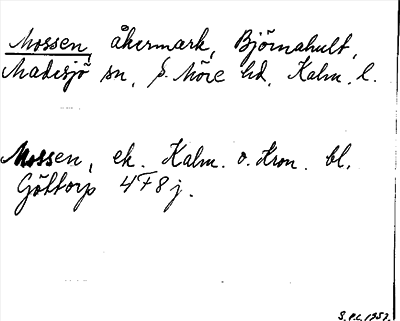 Mossen, åkermark, Björnahult,
Madesjö sn, S. Möre hd, Kalm. l.
Mossen, ek. Kalm. o. Kron. bl.
Göttorp 4F8j.
S.P.L. 1957.